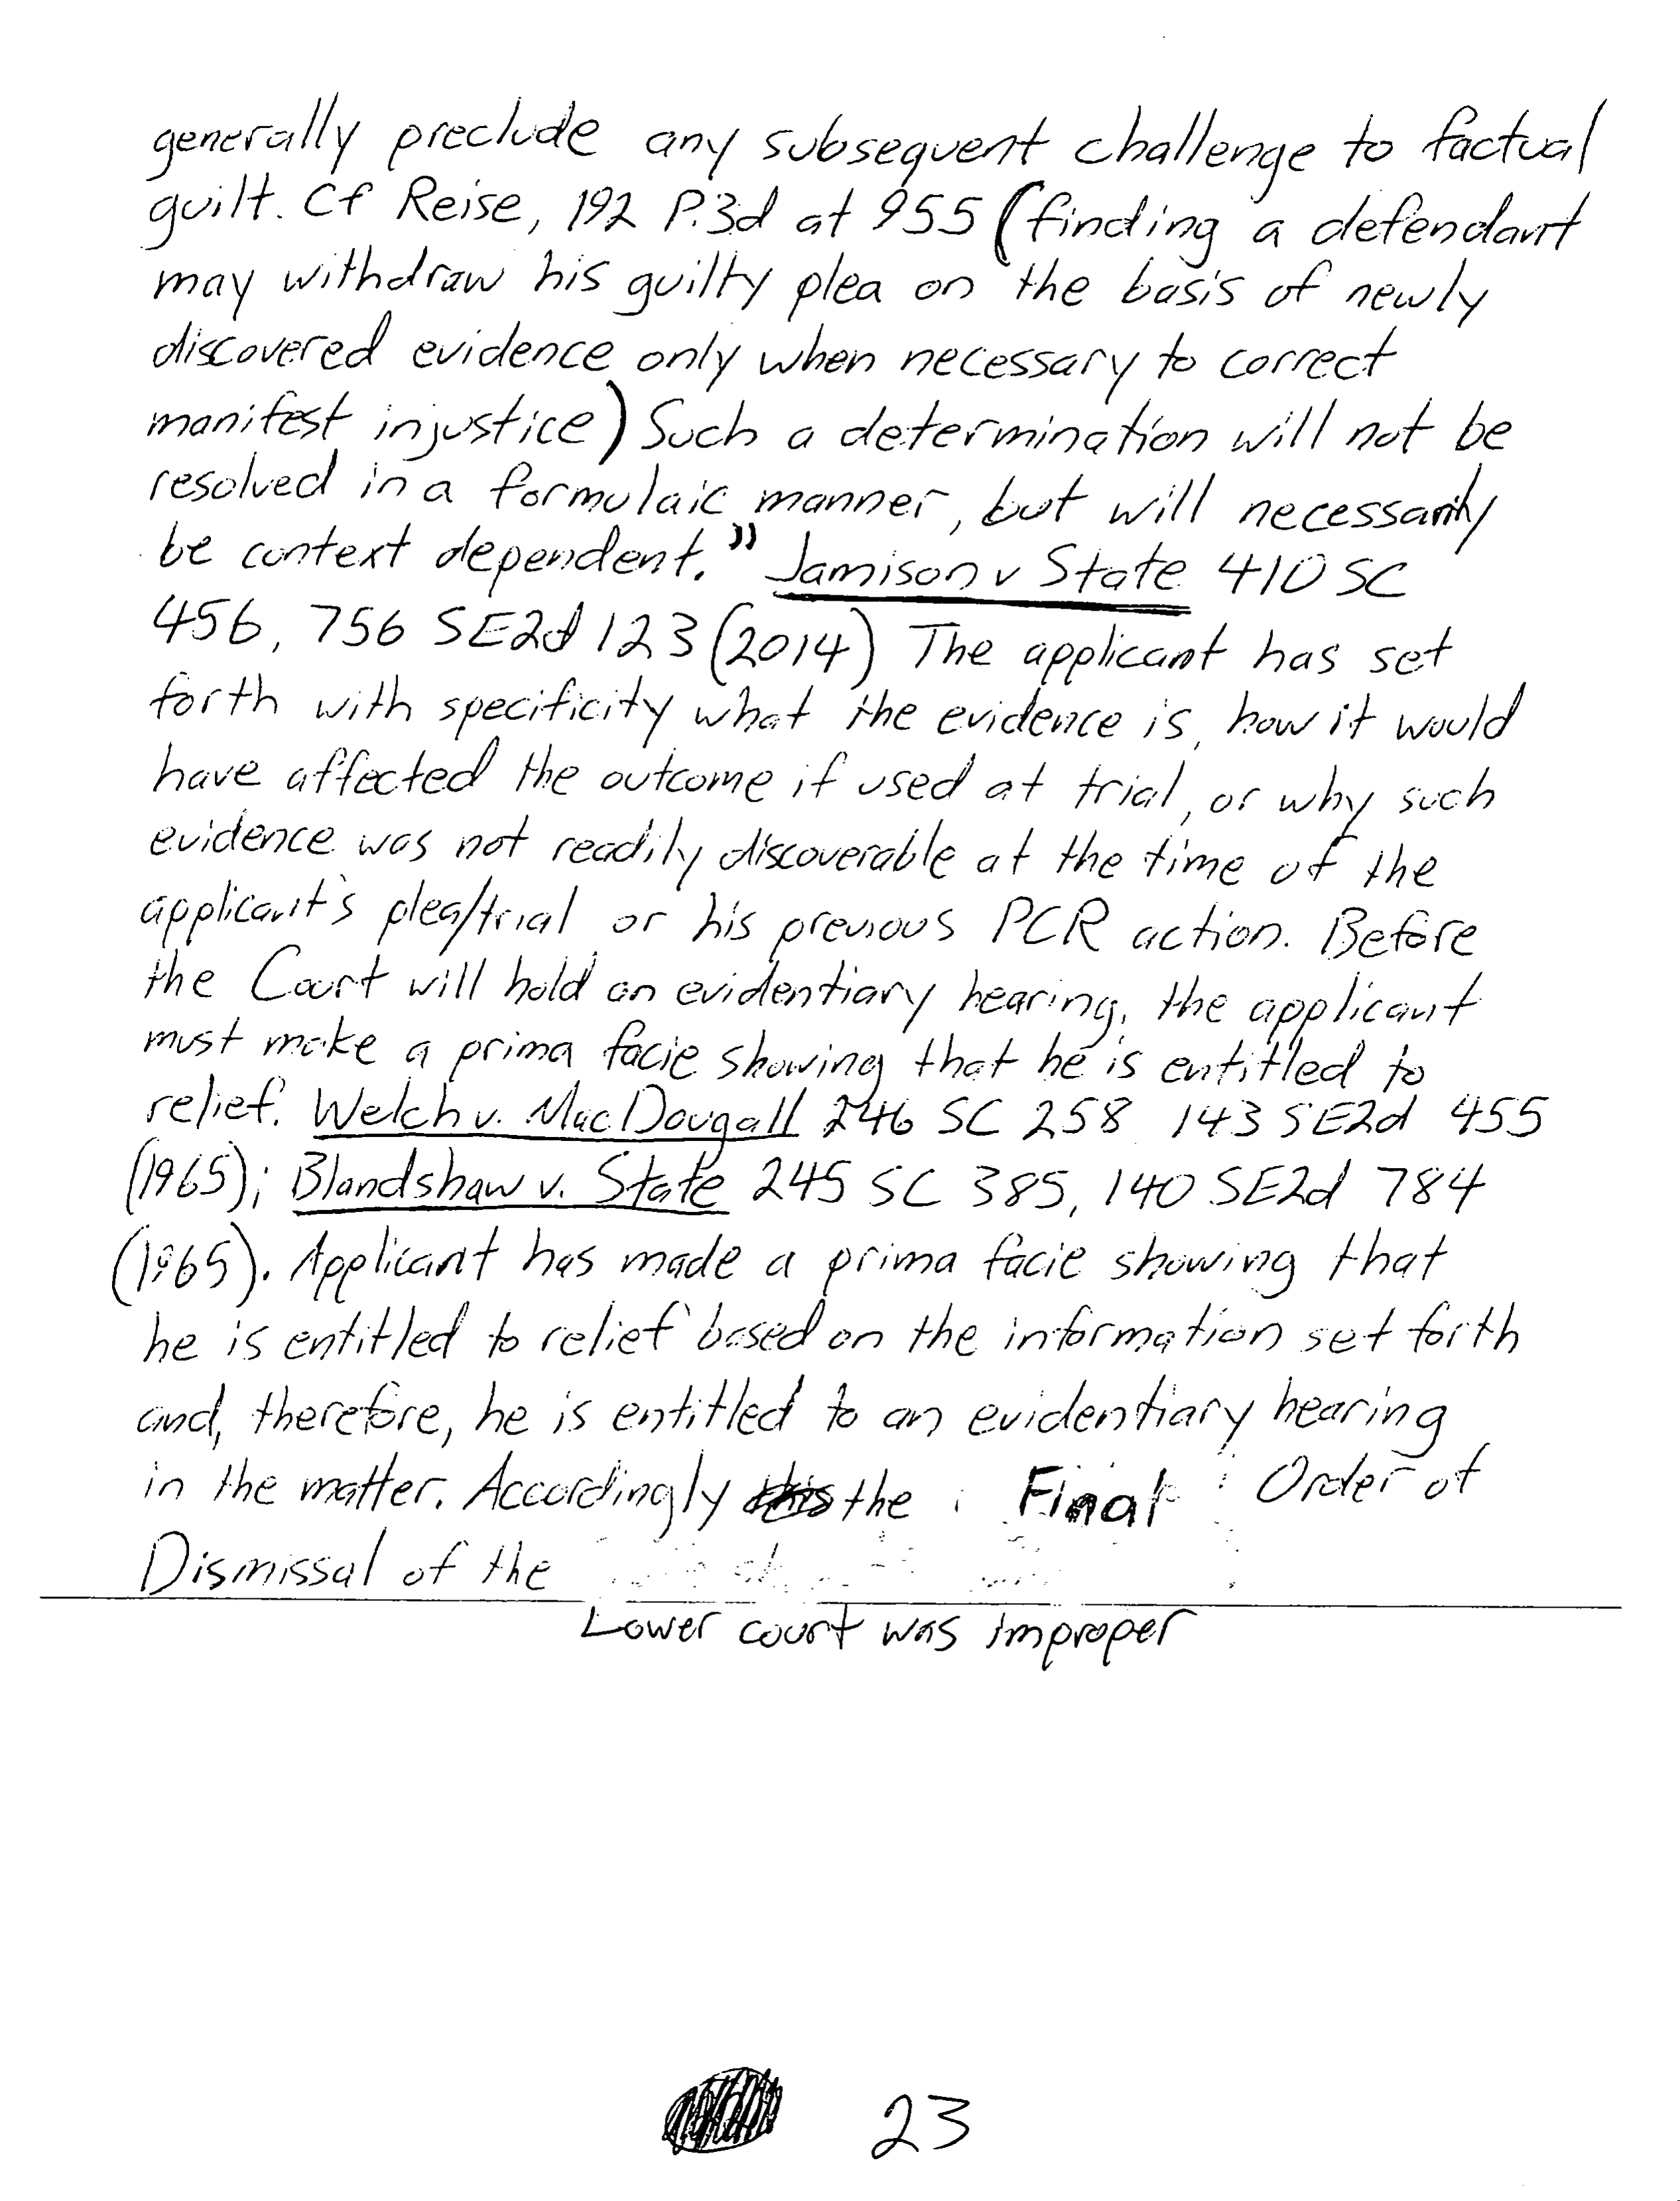 generally preclude any subsequent challenge to factual
guilt. Cf Reise, 192 P.3d at 955 (finding a defendant
may withdraw his guilty plea on the basis of newly
discovered evidence only when necessary to correct
manifest injustice) Such a determination will not be
resolved in a formulaic manner, but will necessarily
be context dependent." Jamison v State 410 SC
456, 756 SE2d 123 (2014) The applicant has set
forth with specificity what the evidence is, how it would
have affected the outcome if used at trial, or why such
evidence was not readily discoverable at the time of the
applicant's plea/trial or his previous PCR action. Before
the Court will hold an evidentiary hearing, the applicant
must make a prima facie showing that he is entitled to
relief. Welch v. MacDougall 246 SC 258 143 SE2d 455
(1965); Blandshaw v. State 245 SC 385, 140 SE2d 784
(1965). Applicant has made a prima facie showing that
he is entitled to relief based on the information set forth
and, therefore, he is entitled to an evidentiary hearing
in the matter. Accordingly this the Final Order of
Dismissal of the
Lower court was improper
23